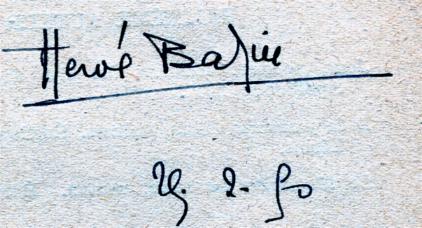 Hervé Bazin
25. 2. 50